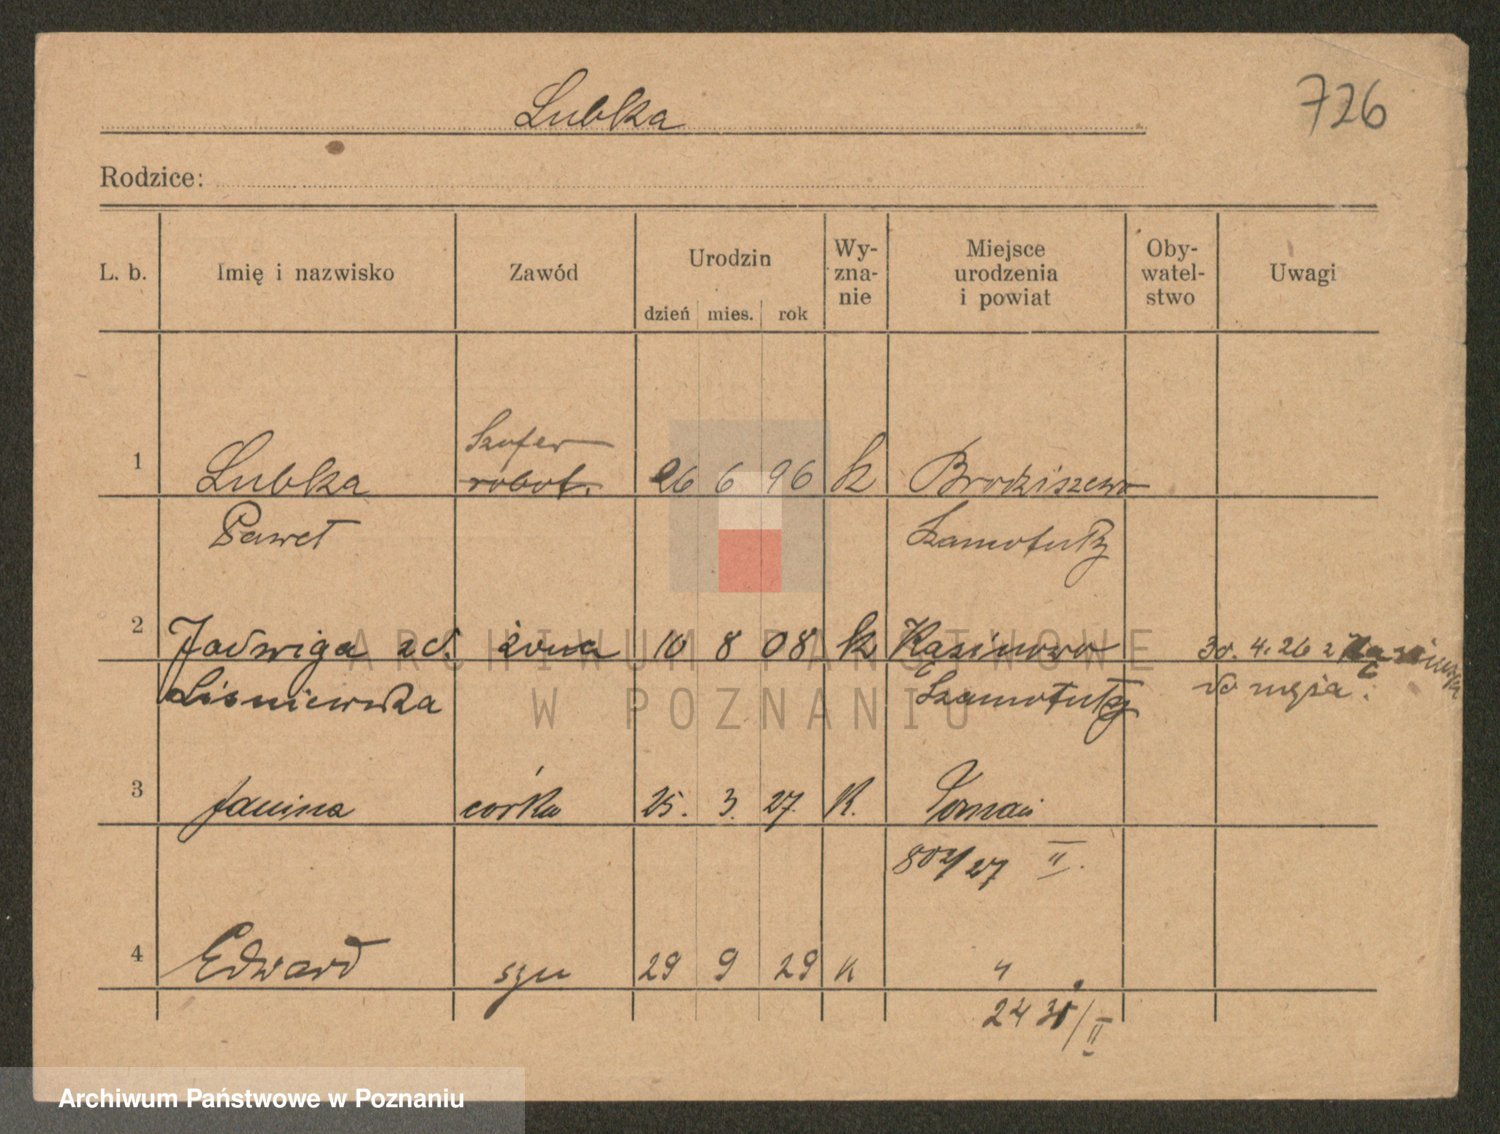 Lubka
726
Rodzice:
L. b. Imię i nazwisko Zawód Urodzin Wyznanie Miejsce urodzenia i powiat Obywatelstwo Uwagi
dzień mies. rok
Szofer
1 Lubka robot. 26 6 96 k Brodziszewo
Paweł Szamotuły
2 Jadwiga zd. żona 10 8 08 k Kąsinowo 30. 4. 26 z
Liśniewska Szamotuły do męża.
3 Janina córka 25. 3. 27. K. Poznań
802/27 II.
4 Edward syn 29 9 29 k "
2430/II
ARCHIWUM PAŃSTWOWE
W POZNANIU
Archiwum Państwowe w Poznaniu